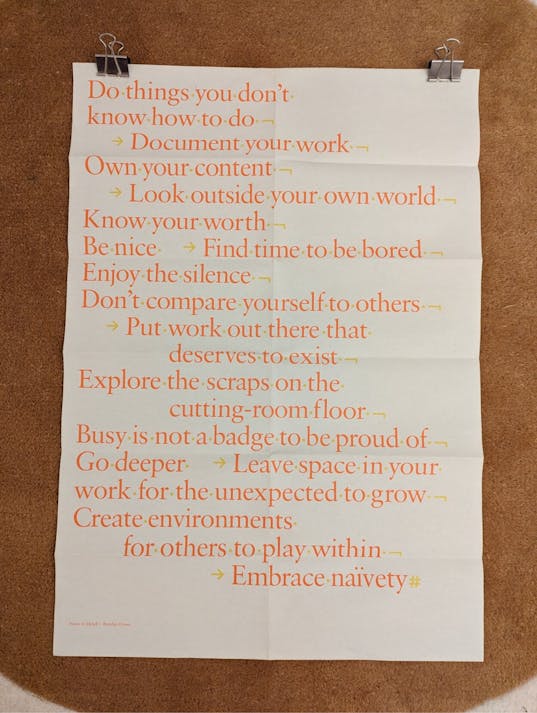 Do·things·you·don't·
know·how·to·do·¬
→ Document·your·work·¬
Own·your·content·¬
→ Look·outside·your·own·world·¬
Know·your·worth·¬
Be·nice· → Find·time·to·be·bored·¬
Enjoy·the·silence·¬
Don't·compare·yourself·to·others·¬
→ Put·work·out·there·that·
deserves·to·exist·¬
Explore·the·scraps·on·the·
cutting-room·floor·¬
Busy·is·not·a·badge·to·be·proud·of·¬
Go·deeper· → Leave·space·in·your·
work·for·the·unexpected·to·grow·¬
Create·environments·
for·others·to·play·within·¬
→ Embrace·naïvety#